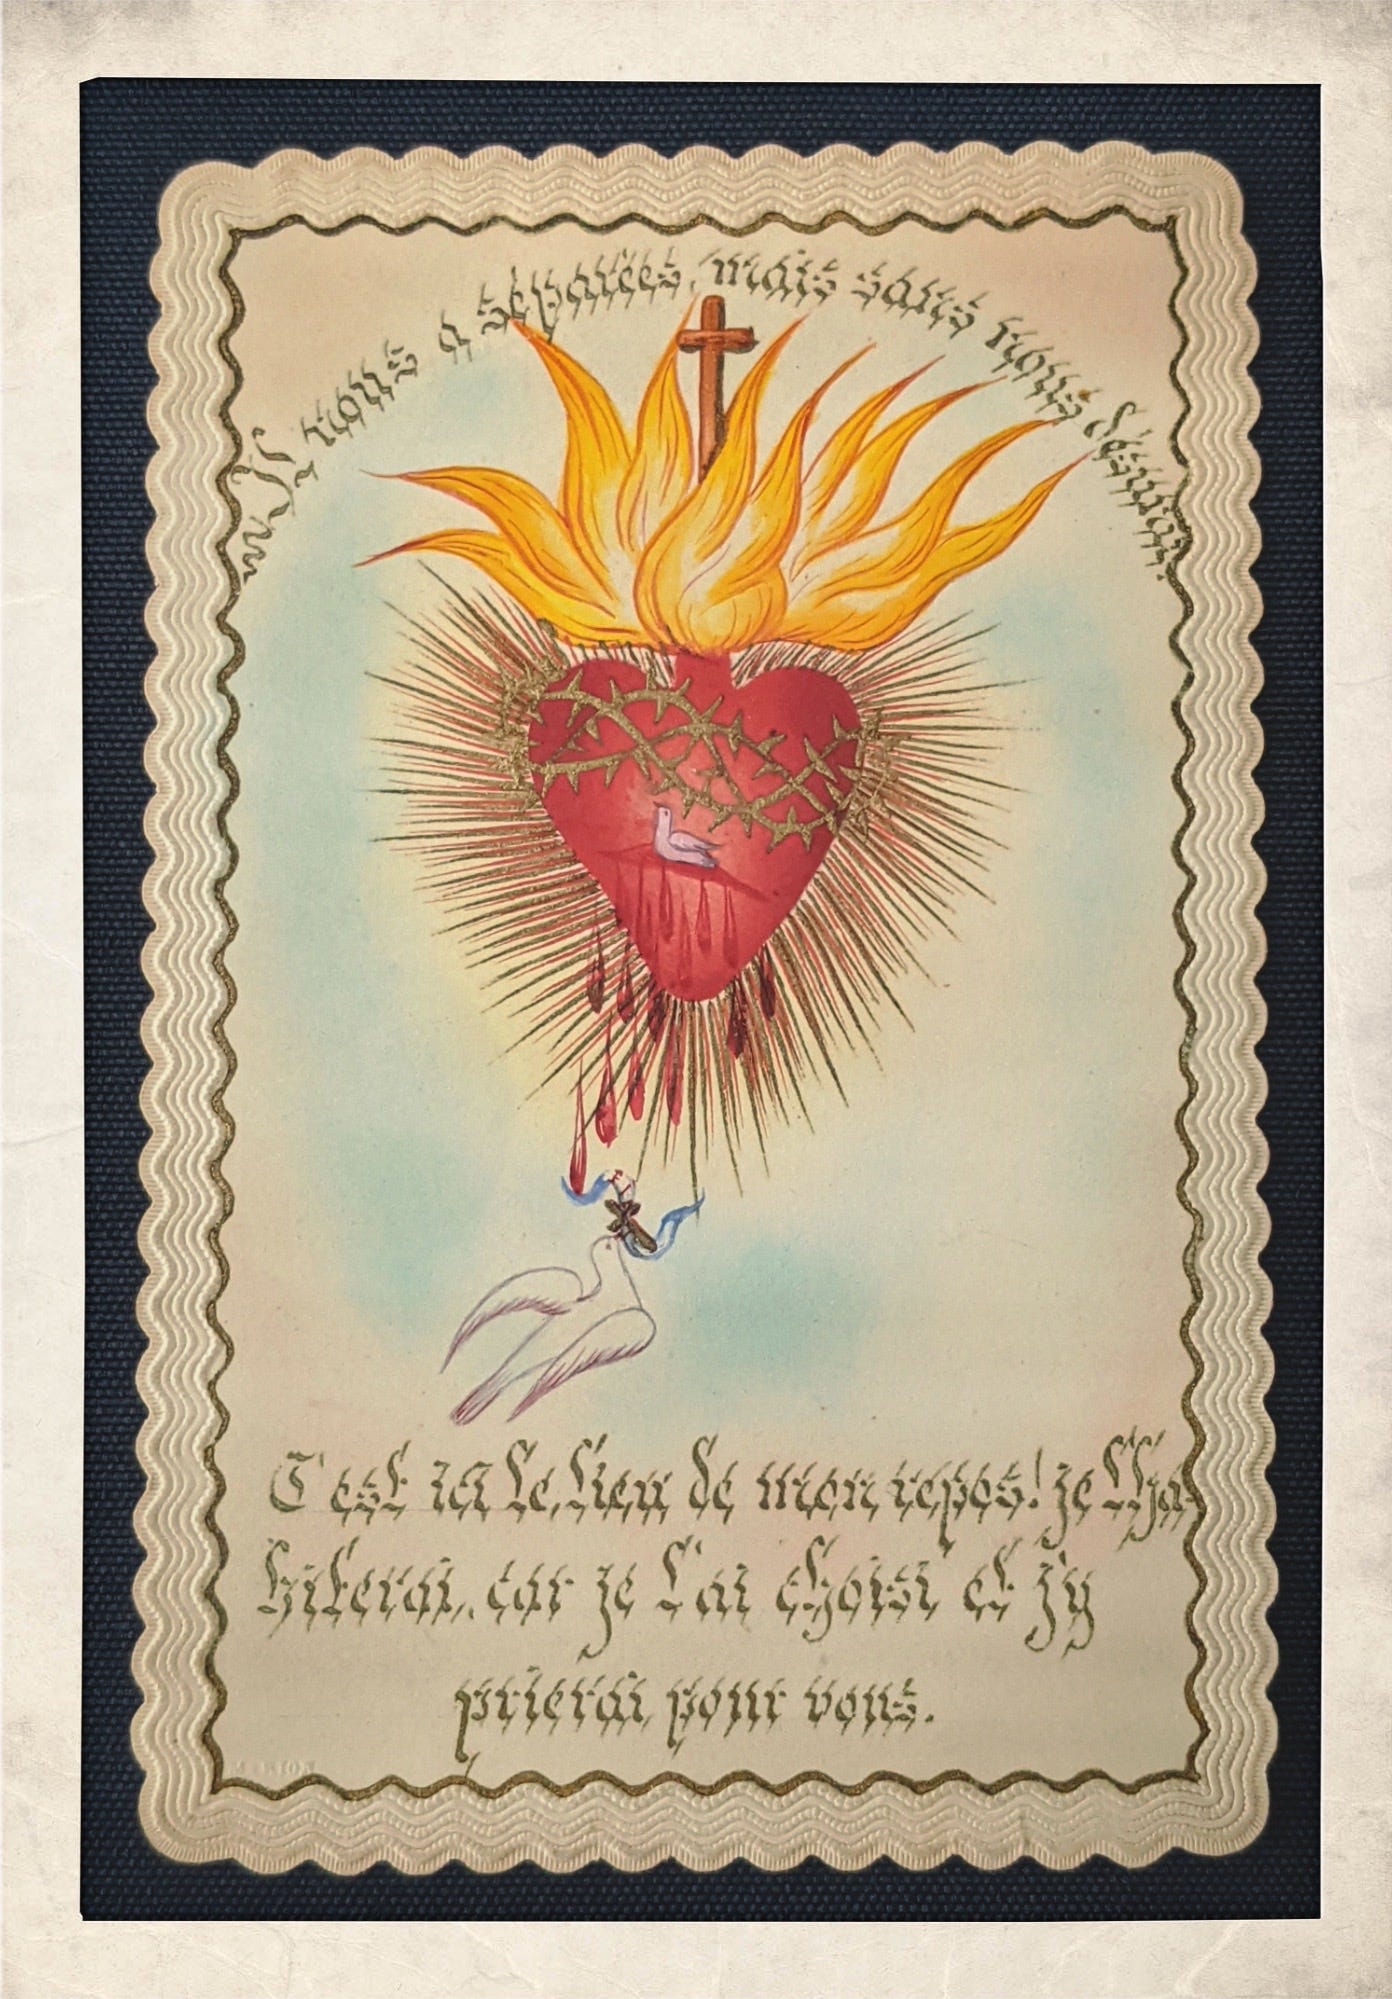 nous a séparées, mais sans nous désunir.
C'est ici le lieu de mon repos! je l'ha-
biterai, car je l'ai choisi et j'y
prierai pour vous.
MARION